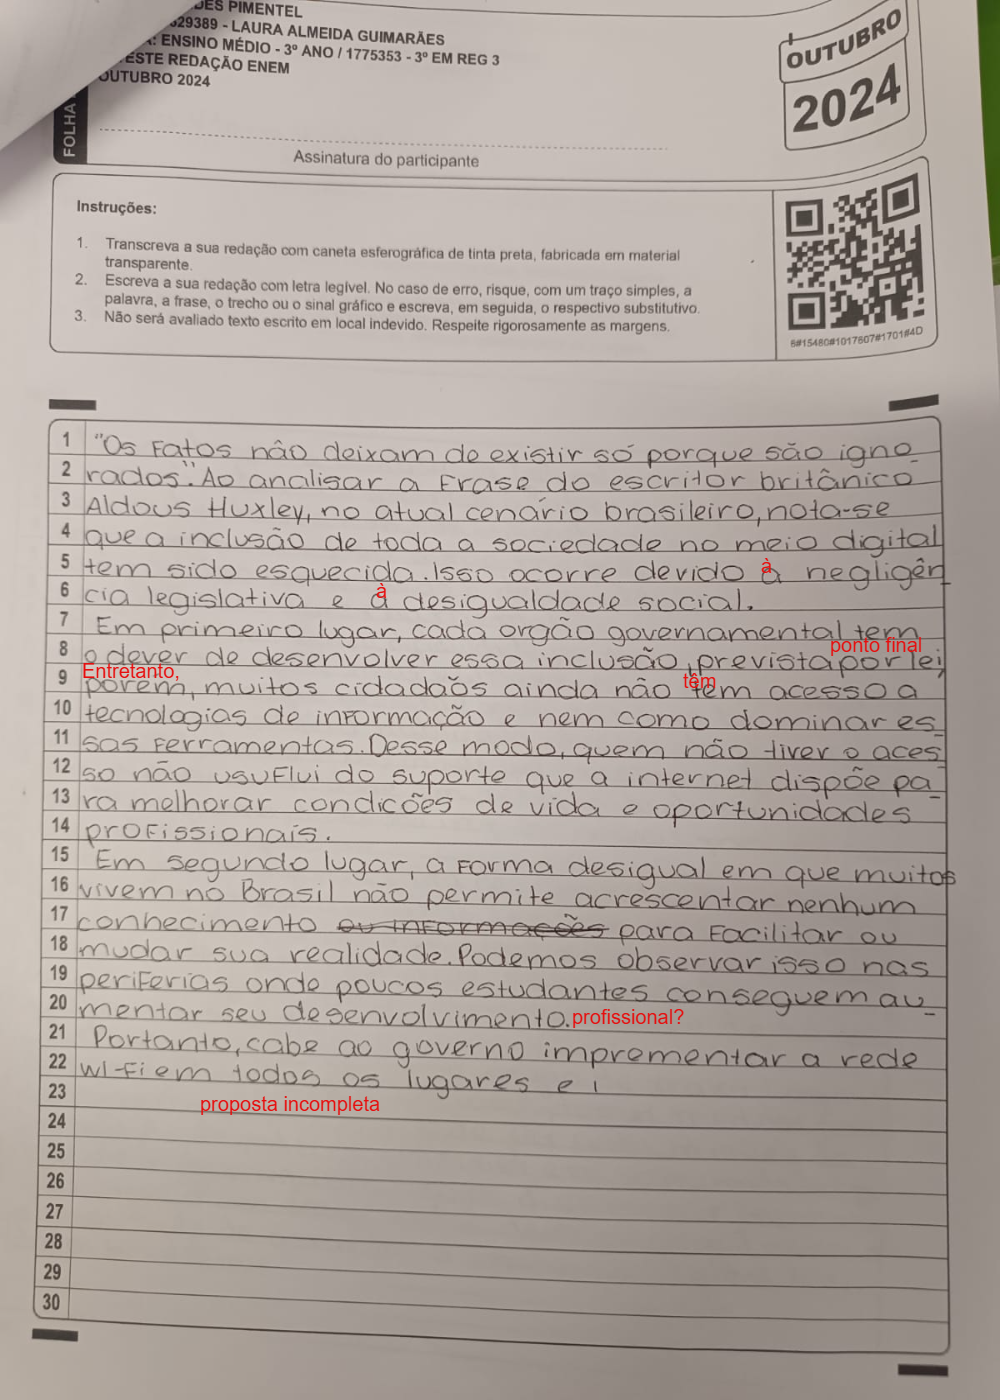 DES PIMENTEL
529389 - LAURA ALMEIDA GUIMARÃES
A: ENSINO MÉDIO - 3º ANO / 1775353 - 3º EM REG 3
ESTE REDAÇÃO ENEM
OUTUBRO 2024
FOLHA
Assinatura do participante
OUTUBRO
2024
Instruções:
1. Transcreva a sua redação com caneta esferográfica de tinta preta, fabricada em material
transparente.
2. Escreva a sua redação com letra legível. No caso de erro, risque, com um traço simples, a
palavra, a frase, o trecho ou o sinal gráfico e escreva, em seguida, o respectivo substitutivo.
3. Não será avaliado texto escrito em local indevido. Respeite rigorosamente as margens.
6#15480#1017607#1701#4D
1 "Os Fatos não deixam de existir só porque são igno_
2 rados". Ao analisar a Frase do escritor britânico
3 Aldous Huxley, no atual cenário brasileiro, nota-se
4 que a inclusão de toda a sociedade no meio digital
5 tem sido esquecida. Isso ocorre devido à negligên
à
6 cia legislativa e a desigualdade social.
7 Em primeiro lugar, cada orgão governamental tem
ponto final
8 o dever de desenvolver essa inclusão, prevista por lei,
Entretanto,
têm
9 porém, muitos cidadãos ainda não tem acesso a
10 tecnologias de informação e nem como dominar es_
11 sas Ferramentas. Desse modo, quem não tiver o aces_
12 so não usuFlui do suporte que a internet dispõe pa_
13 ra melhorar condicões de vida e oportunidades
14 proFissionais.
15 Em segundo lugar, a Forma desigual em que muitos
16 vivem no Brasil não permite acrescentar nenhum
17 conhecimento ou informações para Facilitar ou
18 mudar sua realidade. Podemos observar isso nas
19 periFerias onde poucos estudantes conseguem au_
20 mentar seu desenvolvimento. profissional?
21 Portanto, cabe ao governo imprementar a rede
22 wi-Fi em todos os lugares e i
23
proposta incompleta
24
25
26
27
28
29
30